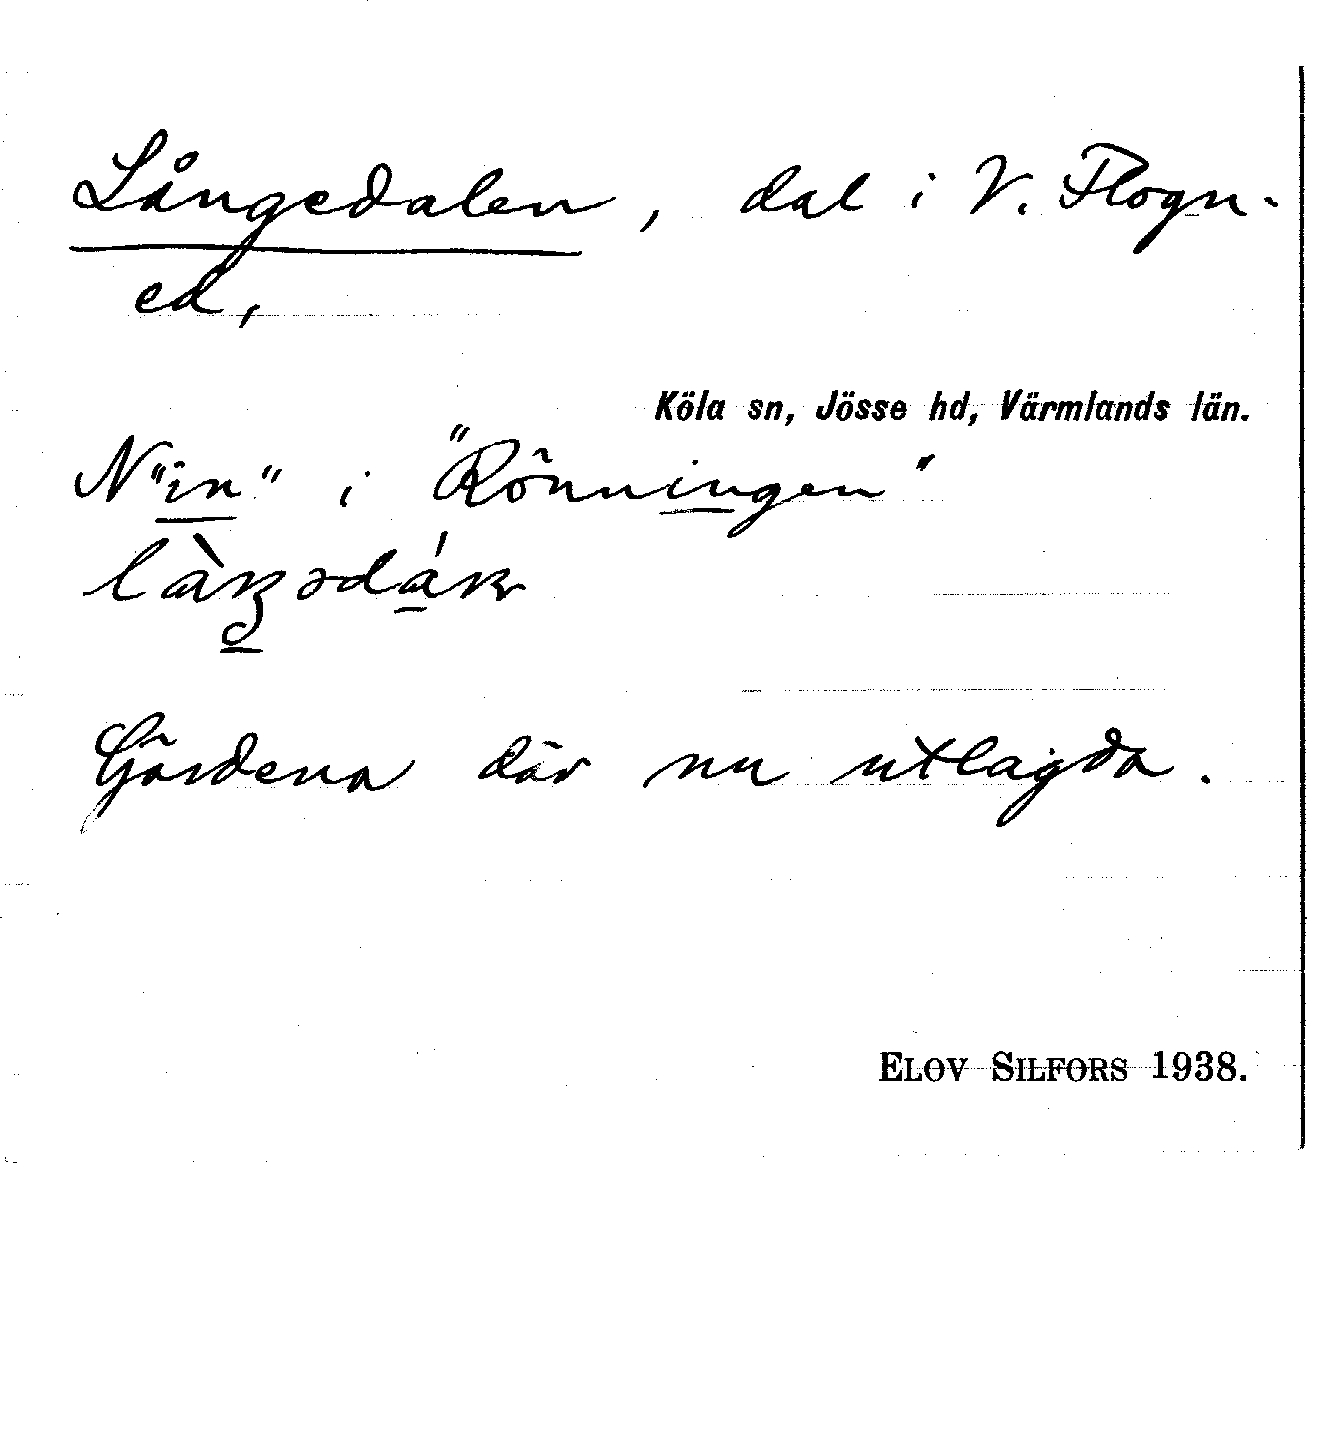 Långedalen, dal i V. Flogn-
ed,
Köla sn, Jösse hd, Värmlands län.
N "in" i "Rönningen"
Gärdena där nu utlagda.
ELOV SILFORS 1938.